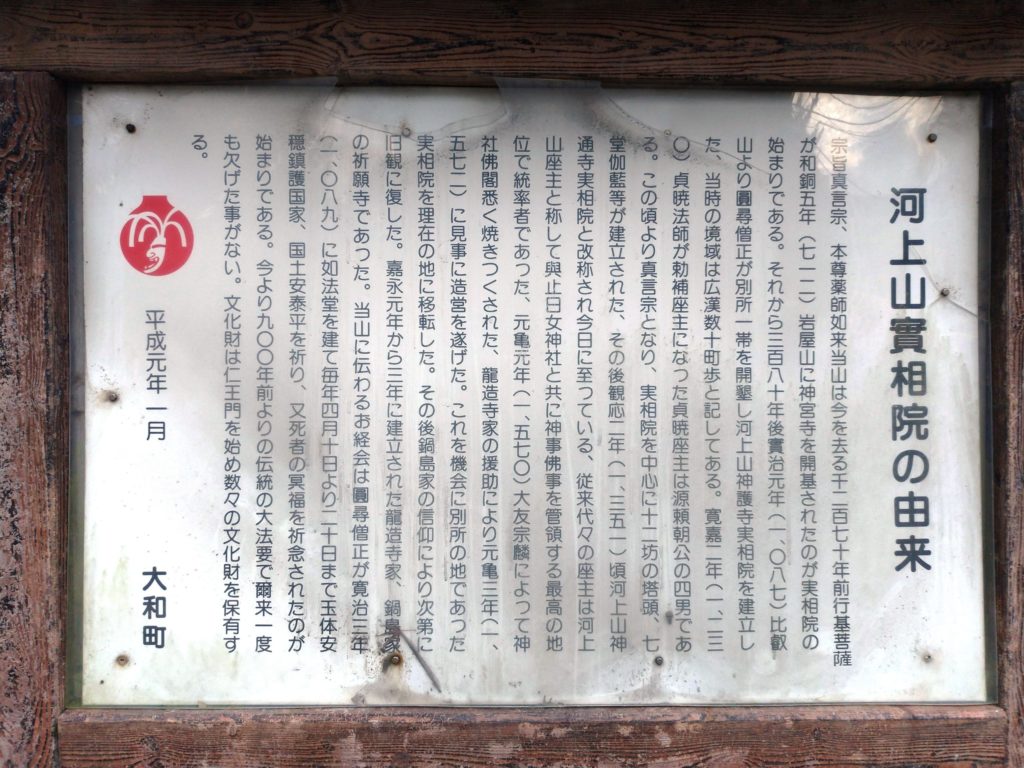 河上山實相院の由来
宗旨真言宗、本尊薬師如来当山は今を去る千二百七十年前行基菩薩
が和銅五年（七一二）岩屋山に神宮寺を開基されたのが実相院の
始まりである。それから三百八十年後實治元年（一、〇八七）比叡
山より圓尋僧正が別所一帯を開墾し河上山神護寺実相院を建立し
た、当時の境域は広漢数十町歩と記してある。寛嘉二年（一、二三
〇）貞暁法師が勅補座主になった貞暁座主は源頼朝公の四男であ
る。この頃より真言宗となり、実相院を中心に十二坊の塔頭、七
堂伽藍等が建立された、その後観応二年（一、三五一）頃河上山神
通寺実相院と改称され今日に至っている、従来代々の座主は河上
山座主と称して與止日女神社と共に神事佛事を管領する最高の地
位で統率者であった、元亀元年（一、五七〇）大友宗麟によって神
社佛閣悉く焼きつくされた、龍造寺家の援助により元亀三年（一、
五七二）に見事に造営を遂げた。これを機会に別所の地であった
実相院を理在の地に移転した。その後鍋島家の信仰により次第に
旧観に復した。嘉永元年から三年に建立された龍造寺家、鍋島家
の祈願寺であった。当山に伝わるお経会は圓尋僧正が寛治三年
（一、〇八九）に如法堂を建て毎年四月十日より二十日まで玉体安
穏鎮護国家、国土安泰平を祈り、又死者の冥福を祈念されたのが
始まりである。今より九〇〇年前よりの伝統の大法要で爾来一度
も欠げた事がない。文化財は仁王門を始め数々の文化財を保有す
る。
平成元年一月
大和町